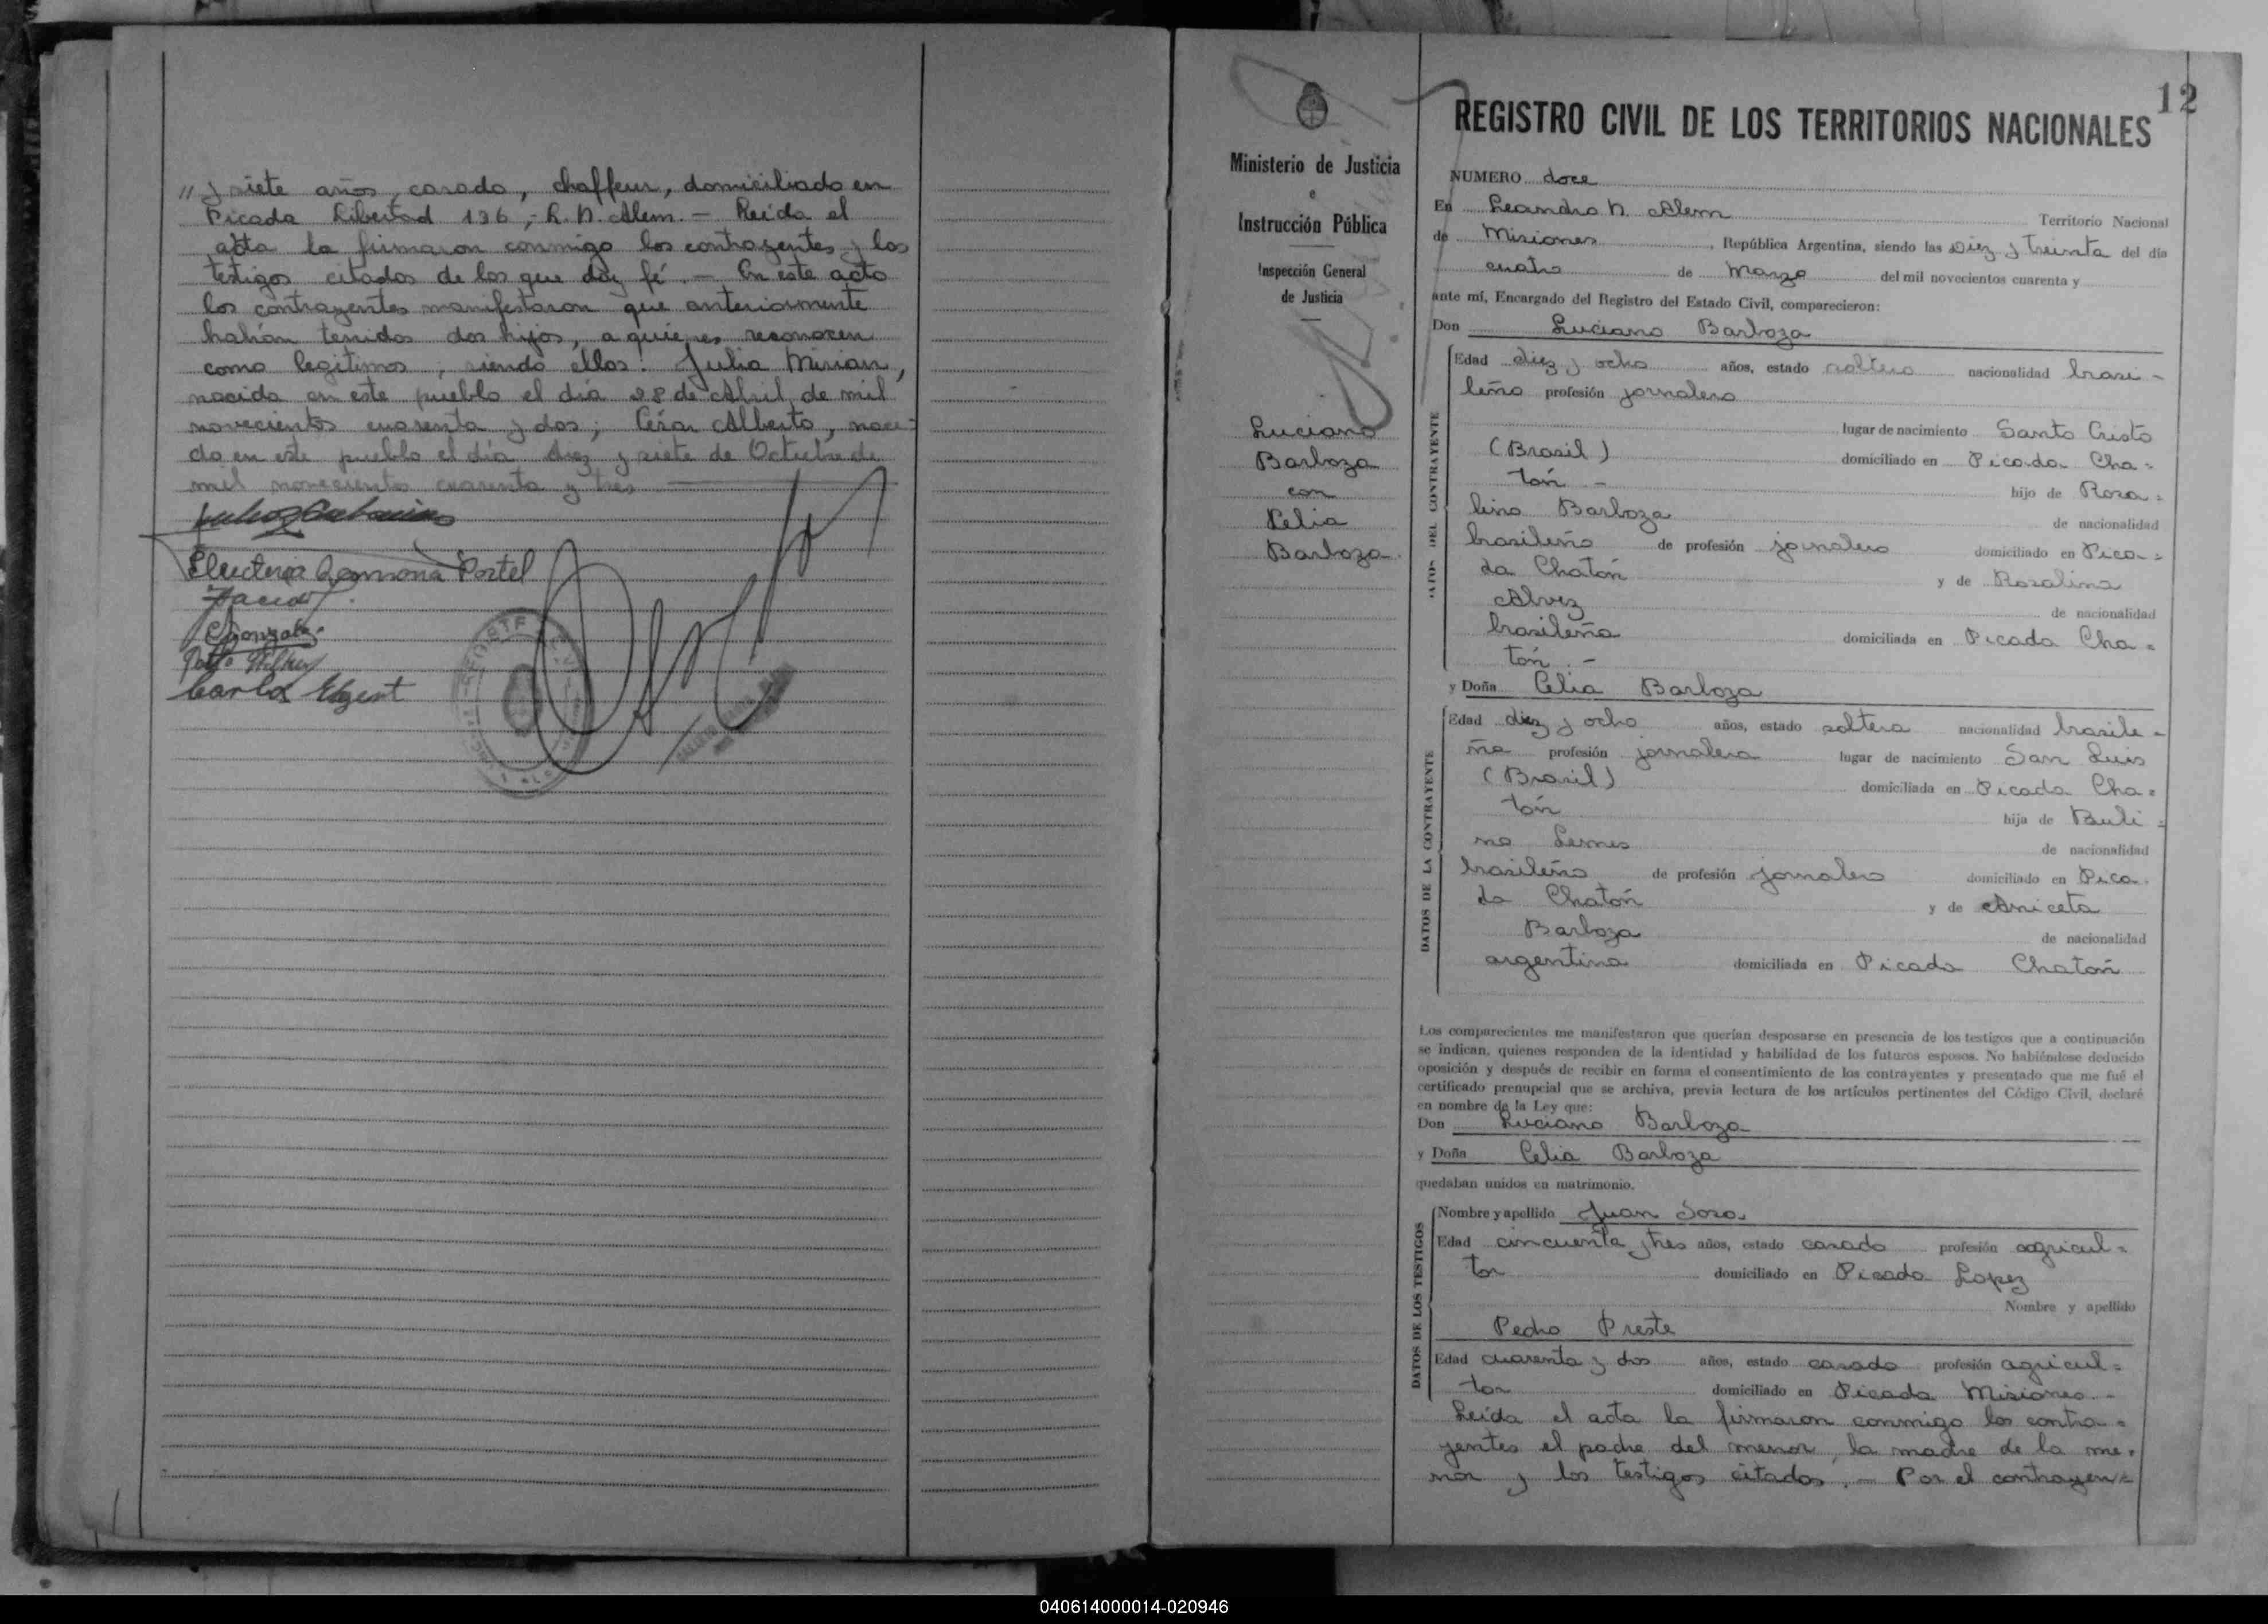 " y siete años, casado, chaffeur, domiciliado en
Picada Libertad 136,- L. N. Alem. - Leída el
acta la firmaron conmigo los contrayentes y los
testigos citados de los que doy fé. - En este acto
los contrayentes manifestaron que anteriormente
habían tenidos dos hijos, a quienes reconocen
como legitimos, siendo ellos: Julia Mirian,
nacida en este pueblo el día 28 de Abril de mil
novecientos cuarenta y dos; César Alberto, naci=
do en este pueblo el día diez y siete de Octubre de
mil novecientos cuarenta y tres
Electeria Ramona Portel
C Gonzalez
Carlos
12
Ministerio de Justicia
e
Instrucción Pública
Inspección General
de Justicia
Luciano
Barboza
con
Celia
Barboza.
REGISTRO CIVIL DE LOS TERRITORIOS NACIONALES
NUMERO doce
En Leandro N. Alem Territorio Nacional
de Misiones, República Argentina, siendo las Diez y treinta del día
cuatro de Marzo del mil novecientos cuarenta y
ante mí, Encargado del Registro del Estado Civil, comparecieron:
Don Luciano Barboza
DATOS DEL CONTRAYENTE
Edad diez y ocho años, estado soltero nacionalidad brasi-
leño profesión jornalero
lugar de nacimiento Santo Cristo
(Brasil) domiciliado en Picada Cha=
tón - hijo de Rosa=
lino Barboza de nacionalidad
brasileño de profesión jornalero domiciliado en Pica=
da Chatón y de Rosalina
Alvez de nacionalidad
brasileña domiciliada en Picada Cha=
tón. -
y Doña Celia Barboza
DATOS DE LA CONTRAYENTE
Edad diez y ocho años, estado soltera nacionalidad brasile-
ña profesión jornalera lugar de nacimiento San Luis
(Brasil) domiciliada en Picada Cha=
tón hija de Buli=
no Lemes de nacionalidad
brasileño de profesión jornalero domiciliado en Pica-
da Chatón y de Aniceta
Barboza de nacionalidad
argentina domiciliada en Picada Chatón
Los comparecientes me manifestaron que querían desposarse en presencia de los testigos que a continuación
se indican, quienes responden de la identidad y habilidad de los futuros esposos. No habiéndose deducido
oposición y después de recibir en forma el consentimiento de los contrayentes y presentado que me fué el
certificado prenupcial que se archiva, previa lectura de los artículos pertinentes del Código Civil, declaré
en nombre de la Ley que:
Don Luciano Barboza
y Doña Celia Barboza
quedaban unidos en matrimonio.
DATOS DE LOS TESTIGOS
Nombre y apellido Juan Soza
Edad cincuenta y tres años, estado casado profesión agricul=
tor domiciliado en Picada Lopez
Nombre y apellido
Pedro Preste
Edad cuarenta y dos años, estado casado profesión agricul=
tor domiciliado en Picada Misiones.-
Leída el acta la firmaron conmigo los contra=
yentes el padre del menor, la madre de la me=
nor y los testigos citados. - Por el contrayen=
040614000014-020946